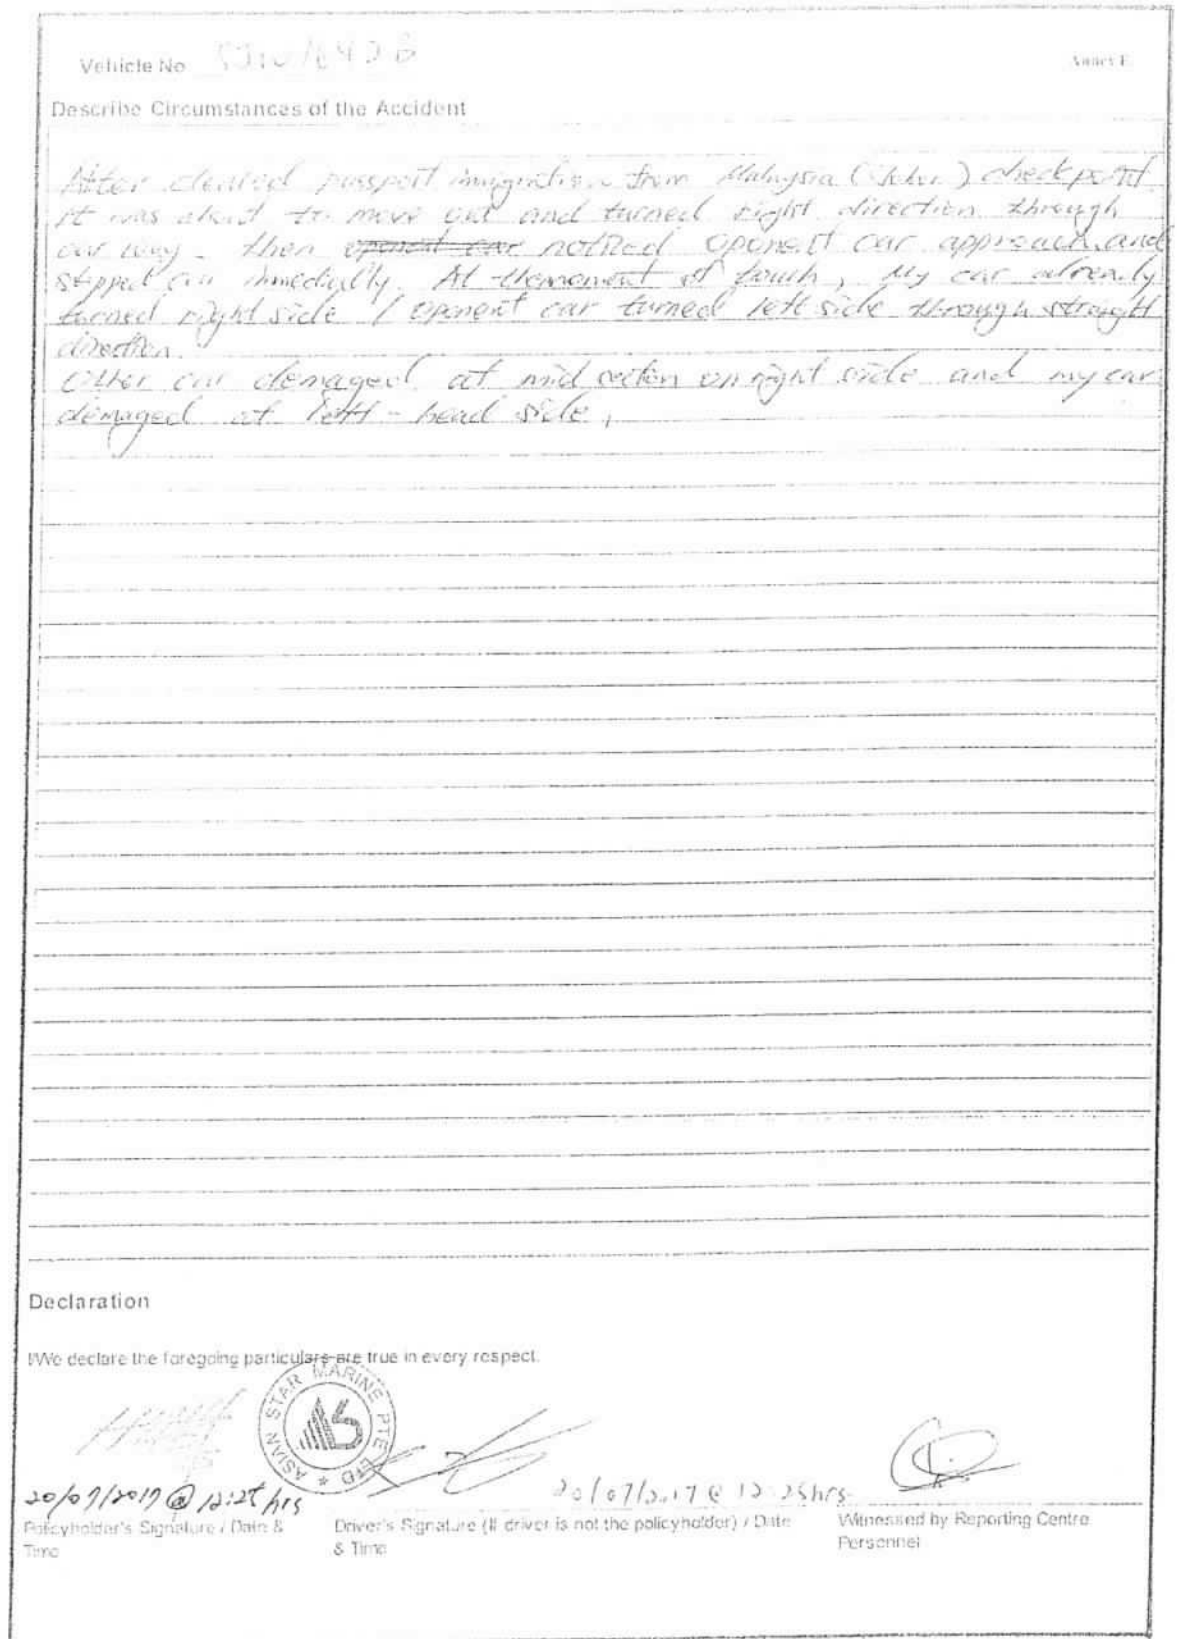 Vehicle No
Annex E
Describe Circumstances of the Accident
After cleared passport immigration from Malaysia (Johor) checkpoint
it was about to move out and turned right direction through
our way. then oponent car noticed oponent car approach and
stopped car immedially. At themoment of touch, My car already
turned right side / oponent car turned left side through straight
direction.
Other car demaged at mid section on right side and my car
demaged at left-head side,
Declaration
I/We declare the foregoing particulars are true in every respect.
ASIAN STAR MARINE PTE LTD
20/07/2017 @ 12:25 hrs
20/07/2017 @ 12:25hrs
Policyholder's Signature / Date &
Time
Driver's Signature (If driver is not the policyholder) / Date
& Time
Witnessed by Reporting Centre
Personnel